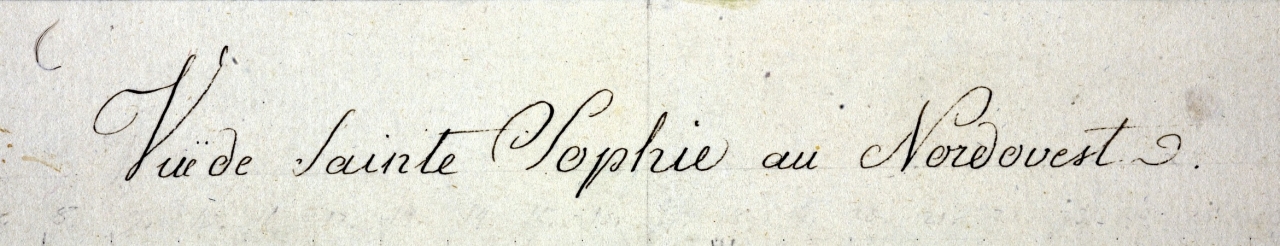 Vuë de Sainte Sophie au Nordovest.